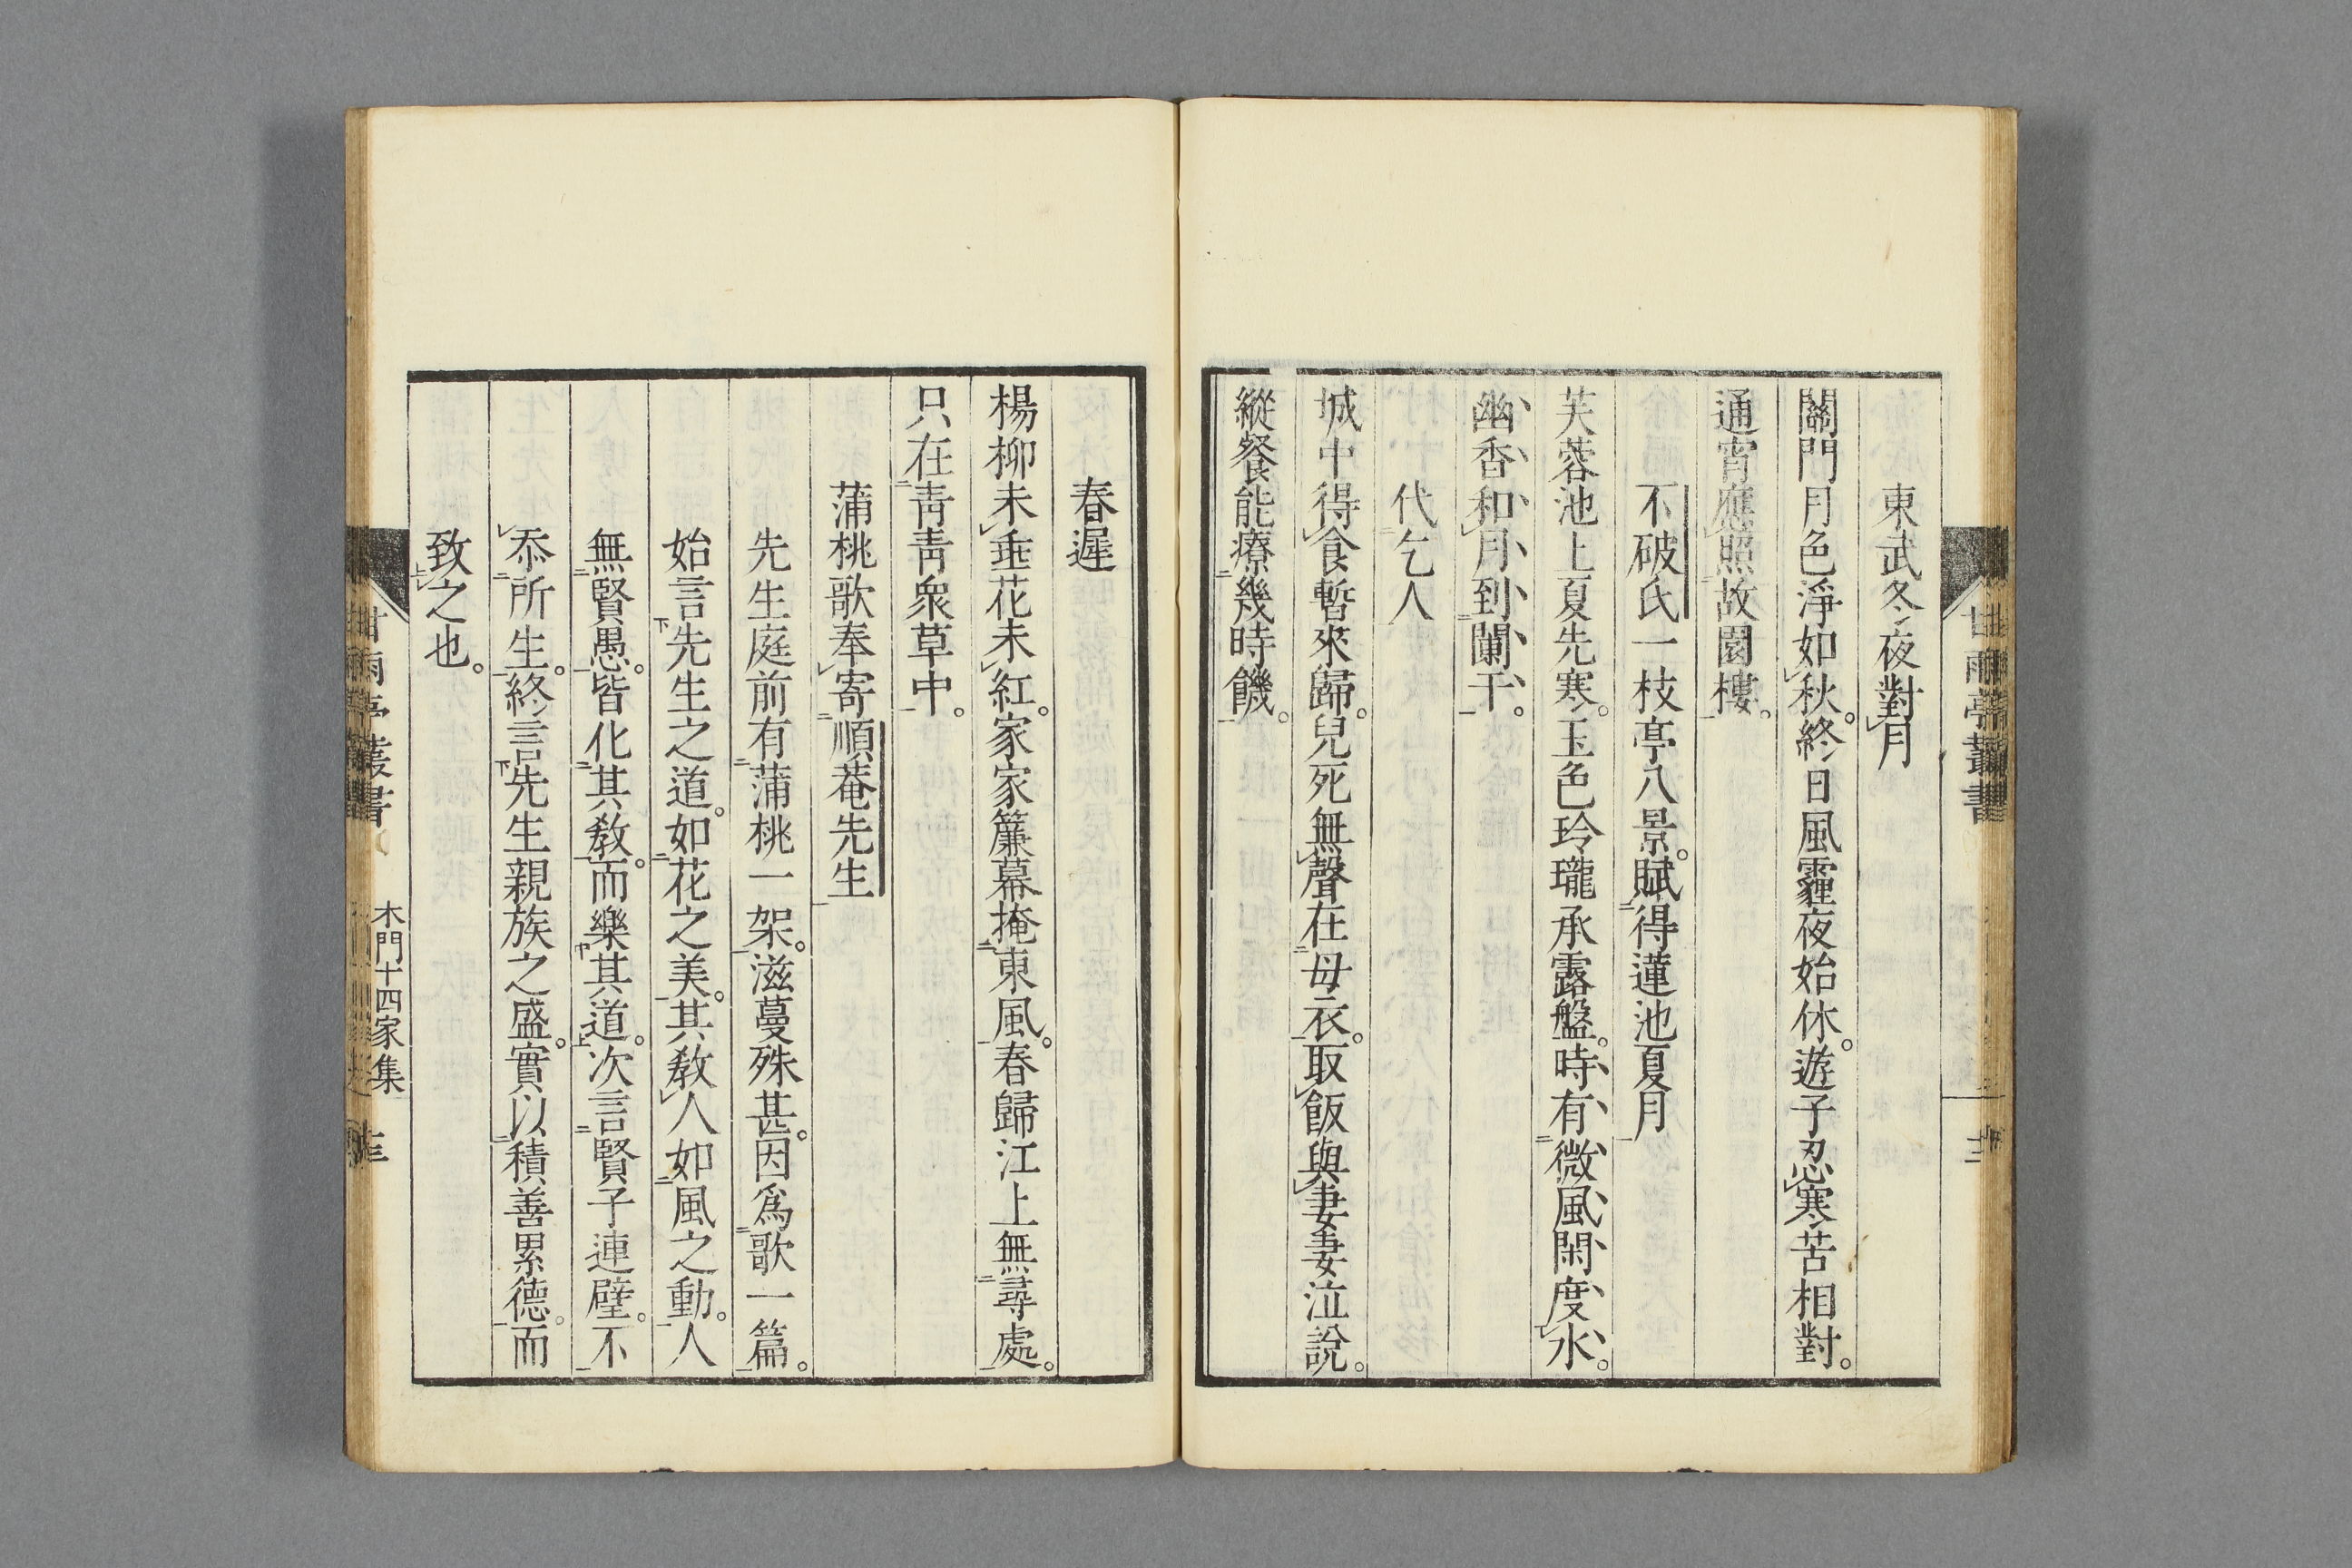 東武冬夜對月
關門月色淨如秋。終日風霾夜始休。遊子忍寒苦相對。
通宵應照故園樓。
不破氏一枝亭八景。賦得蓮池夏月
芙蓉池上夏先寒。玉色玲瓏承露盤。時有微風閑度水。
幽香和月到闌干。
代乞人
城中得食暫來歸。兒死無聲在母衣。取飯與妻妻泣說。
縱餐能療幾時饑。
春遲
楊柳未垂花未紅。家家簾幕掩東風。春歸江上無尋處。
只在青青衆草中。
蒲桃歌奉寄順菴先生
先生庭前有蒲桃一架。滋蔓殊甚。因爲歌一篇。
始言先生之道。如花之美。其教人如風之動。人
無賢愚。皆化其教。而樂其道。次言賢子連璧。不
忝所生。終言先生親族之盛。實以積善累德。而
致之也。
甘雨亭叢書
木門十四家集
甘雨亭叢書